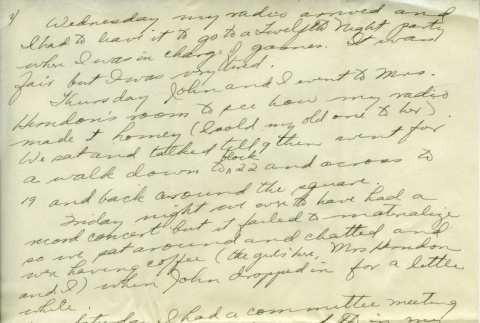 3/
Wednesday my radio arrived and
I had to leave it to go to a Twelfth Night party
where I was in charge of games. It was
fair but I was very tired.
Thursday John and I went to Mrs.
Herndon's room to see how my radio
made it homey (I sold my old one to her).
We sat and talked till 9 then went for
a walk down to block 22 and across to
19 and back around the square.
Friday night we were to have had a
record concert but it failed to materialize
so we sat around and chatted and
were having coffee (the girls here, Mrs Herndon
and I) when John dropped in for a little
while.
Saturday I had a committee meeting
in my